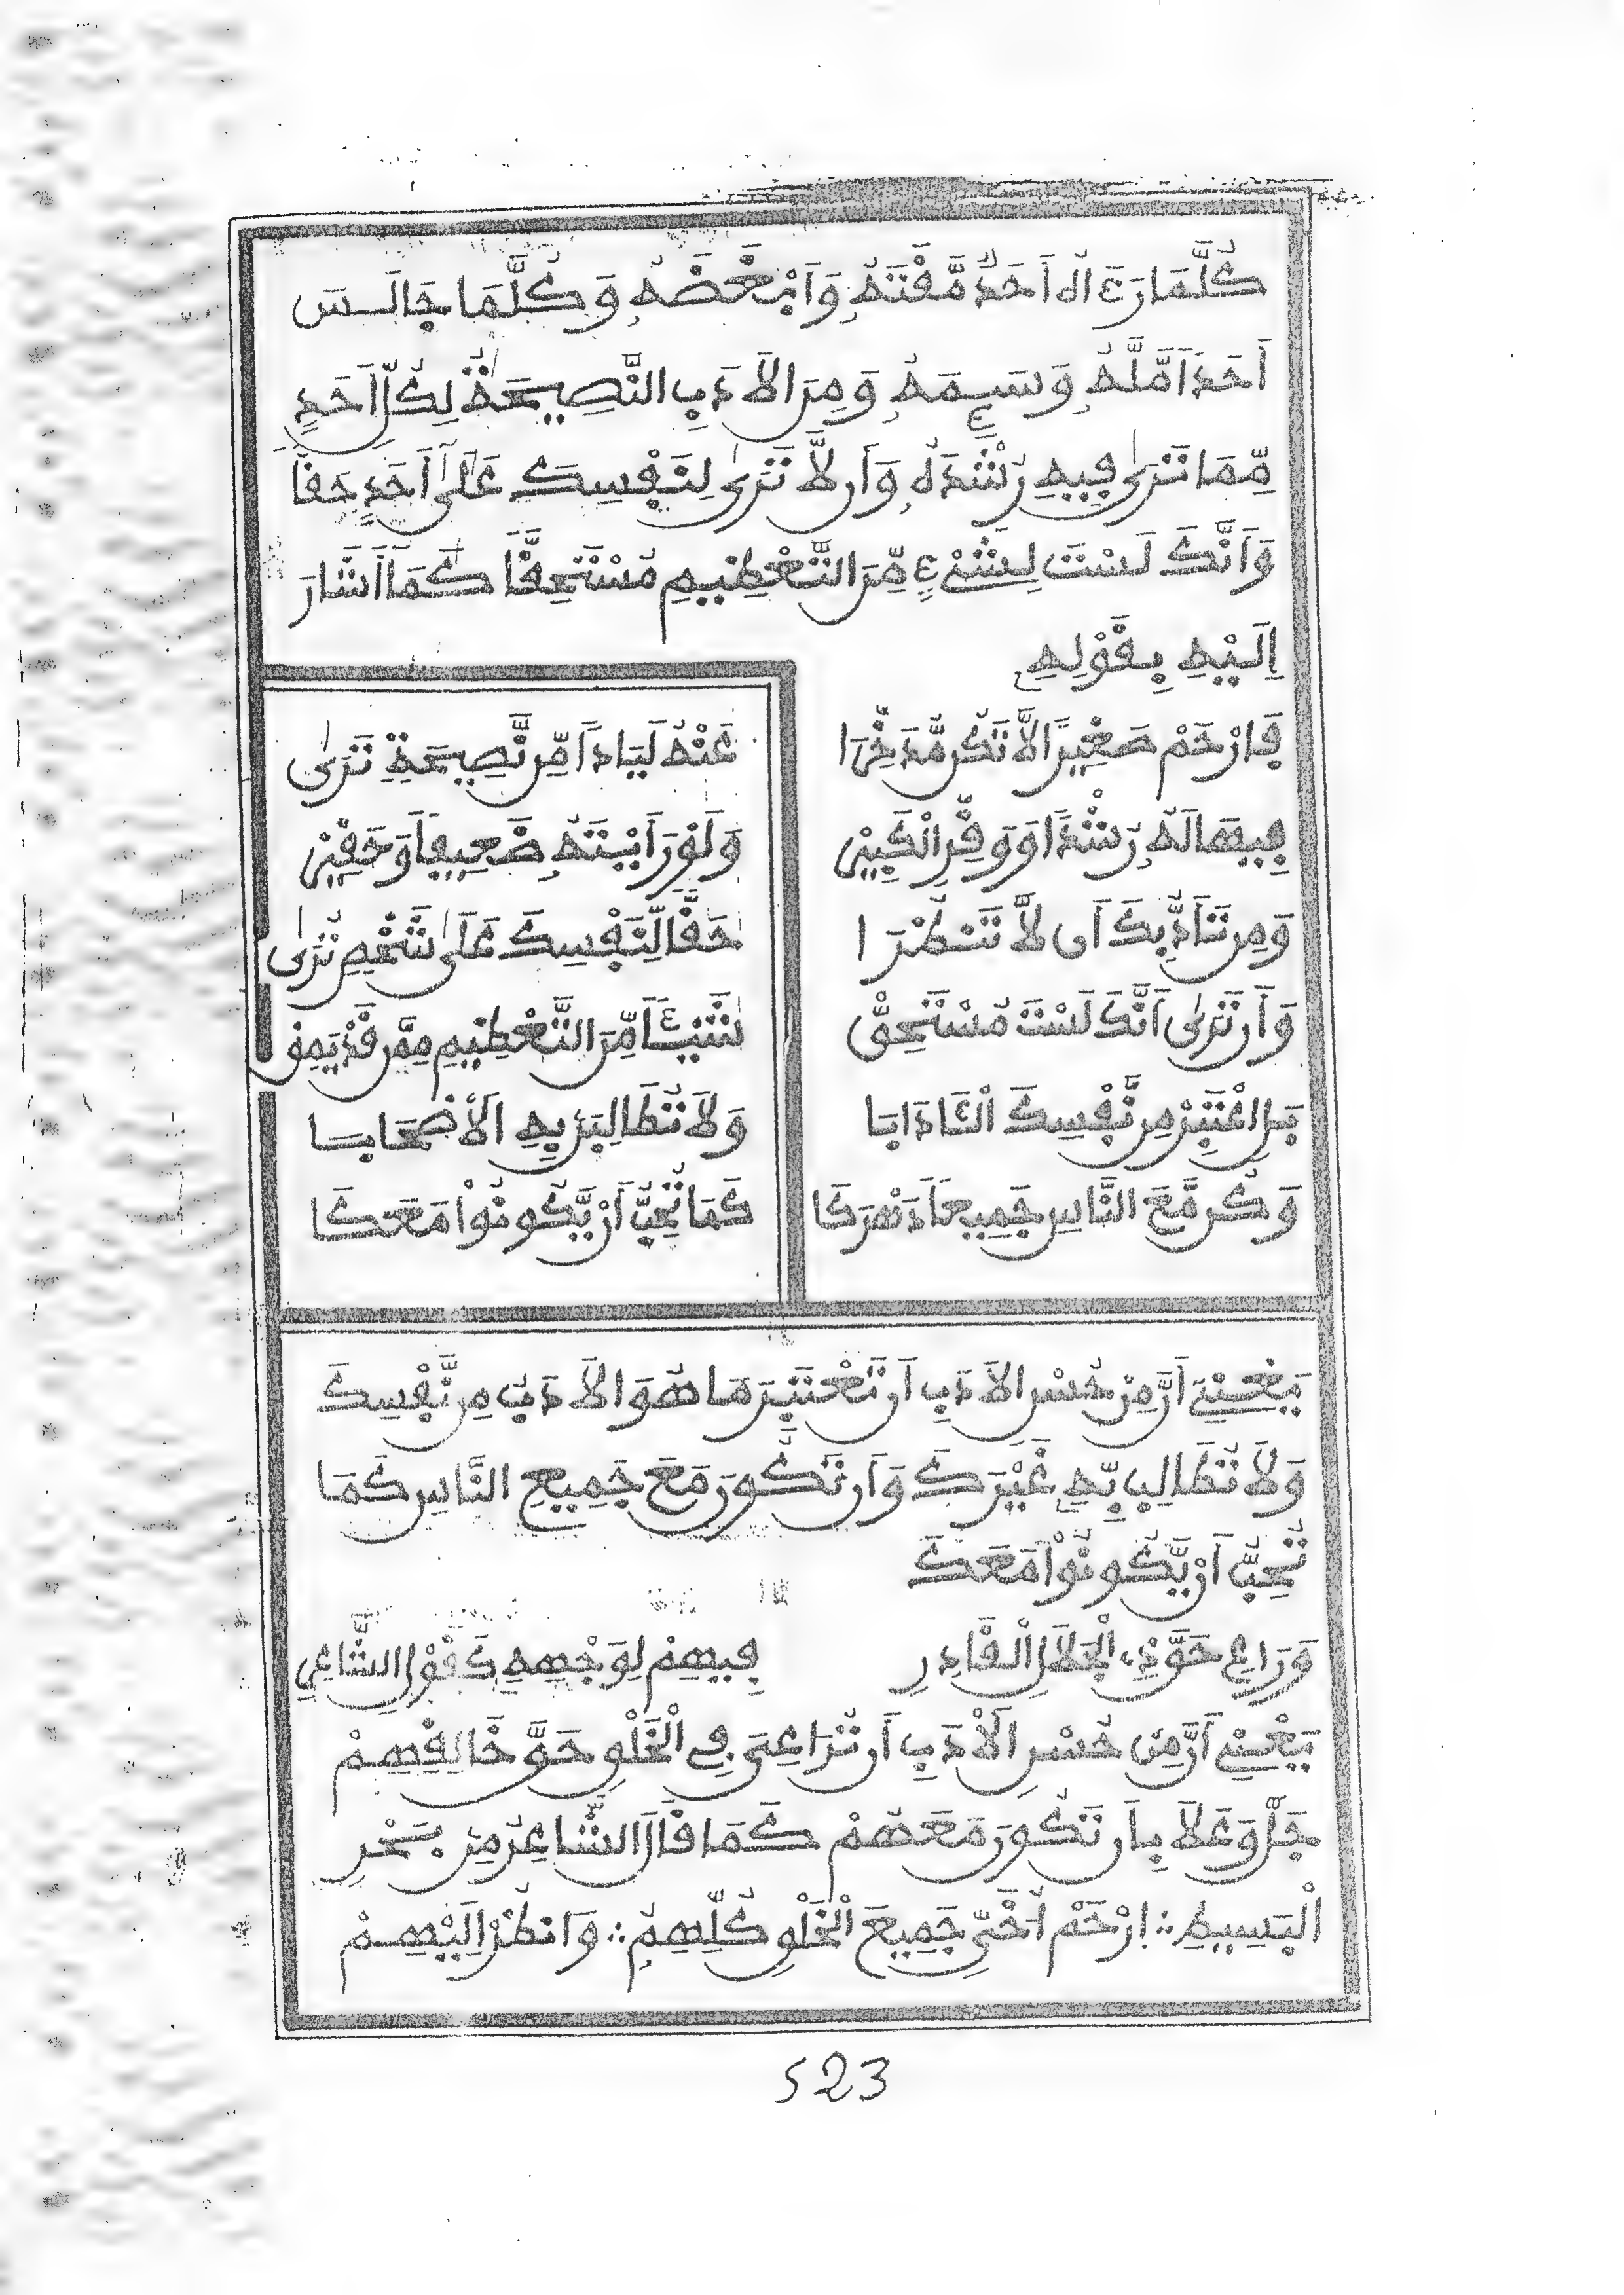 كُلَّمَا رَءَاهُ أَحَدٌ مَّقَتَهُ وَأَبْغَضَهُ وَكُلَّمَا جَالَسَ
أَحَداً مَّلَّهُ وَسَيِمَهُ وَمِنَ الأَدَبِ النَّصِيحَةُ لِكُلِّ أَحَدٍ
مِّمَا تَرَىٰ فِيهِ رُشْدَهُ وَأَن لاَّ تَرَىٰ لِنَفْسِكَ عَلَىٰ أَحَدٍ حَقّاً
وَأَنَّكَ لَسْتَ لِشَيْءٍ مِّنَ التَّعْظِيمِ مُسْتَحِقّاً كَمَا أَشَارَ
إِلَيْهِ بِقَوْلِهِ
فَارْحَمْ صَغِيراً لاَّ تَكُن مُّدَّخِرَا
عَنْهُ لَيَاداً مِّن نَّصِيحَةٍ تَرَىٰ
فِيهَا لَهُ رُشْداً وَوَقِّرِ الْكَبِيرْ
وَلَوْ رَأَيْتَهُ ضَعِيفاً وَحَقِيرْ
وَمِن تَأَدُّبِكَ أَن لاَّ تَنظُرَا
حَقّاً لِّنَفْسِكَ عَلَىٰ شَخْصٍ تُرَىٰ
وَأَن تَرَىٰ أَنَّكَ لَسْتَ مُسْتَحِقْ
شَيْئاً مِّنَ التَّعْظِيمِ مِمَّن قَدْ يَمِقْ
بَلِ اعْتَبِرْ مِن نَّفْسِكَ الْئَادَابَا
وَلاَ تُطَالِبَن بِهِ الأَصْحَابَا
وَكُن مَّعَ النَّاسِ جَمِيعاً دَهْرَكَا
كَمَا تُحِبُّ أَنْ يَّكُونُواْ مَعَكَا
يَعْنِي أَنَّ مِنْ حُسْنِ الأَدَبِ أَن تَعْتَبِرَ مَا هُوَ الأَدَبُ مِن نَّفْسِكَ
وَلاَ تُطَالِبَ بِّهِ غَيْرَكَ وَأَن تَكُونَ مَعَ جَمِيعِ النَّاسِ كَمَا
تُحِبُّ أَنْ يَّكُونُواْ مَعَكَ
وَرَاعِ حَقَّ ذِي الْجَلاَلِ الْقَادِرِ
فِيهِمْ لِوَجْهِهِ كَقَوْلِ الشَّاعِرِ
يَعْنِي أَنَّ مِنْ حُسْنِ الأَدَبِ أَن تُرَاعِيَ فِي الْخَلْقِ حَقَّ خَالِقِهِمْ
جَلَّ وَعَلاَ بِأَن تَكُونَ مَعَهُمْ كَمَا قَالَ الشَّاعِرُ مِنْ بَحْرِ
الْبَسِيطِ ∴ اِرْحَمْ أُخَيَّ جَمِيعَ الْخَلْقِ كُلِّهِمُ ∴ وَانظُرْ إِلَيْهِمْ
523